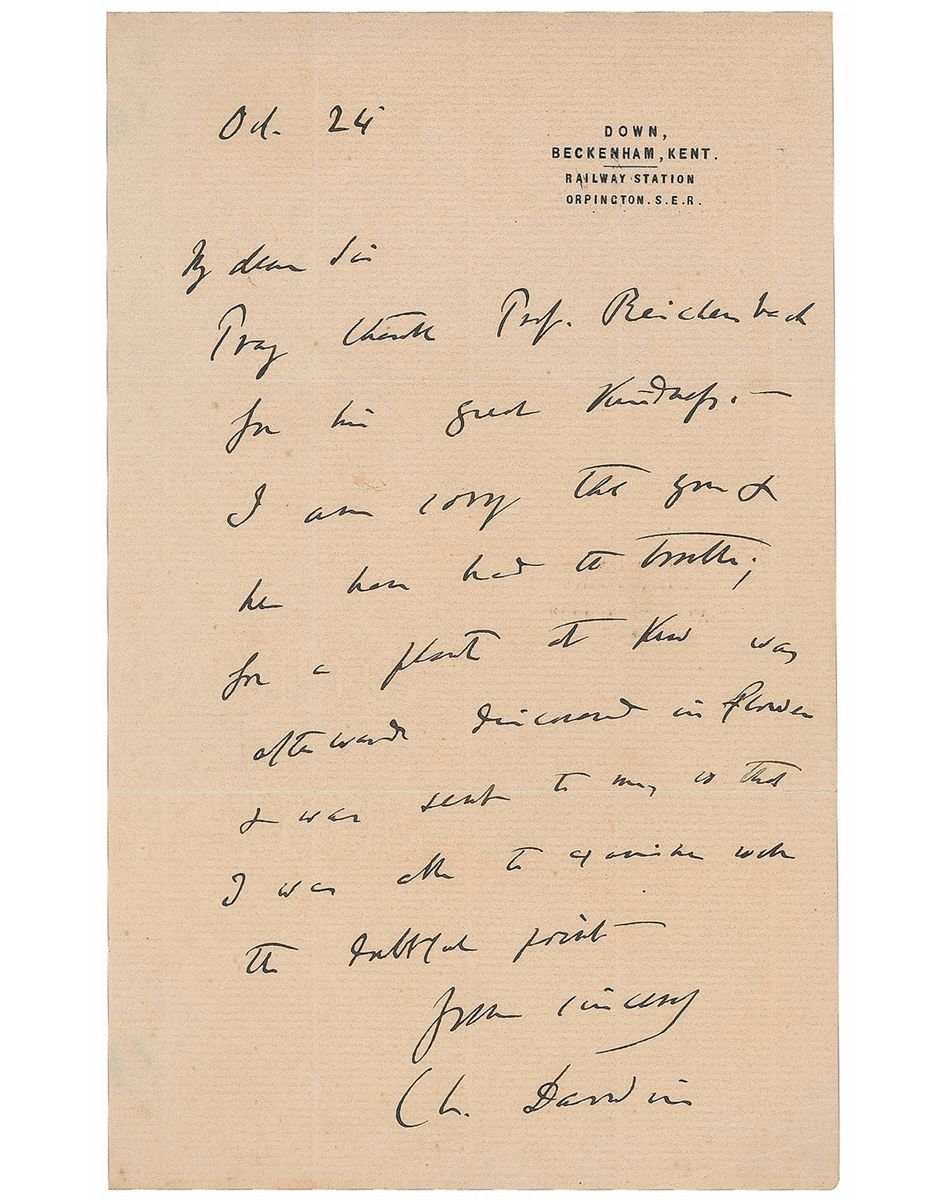 Oct. 24
DOWN,
BECKENHAM, KENT.
RAILWAY STATION
ORPINGTON. S.E.R.
My dear Sir
Pray thank Prof. Reichenbach
for his great kindness. —
I am sorry that you &
he have had the trouble;
for a plant at Kew was
afterwards discovered in flower
& was sent to me, so that
I was able to examine
the doubtful point
Yours sincerely
Ch. Darwin